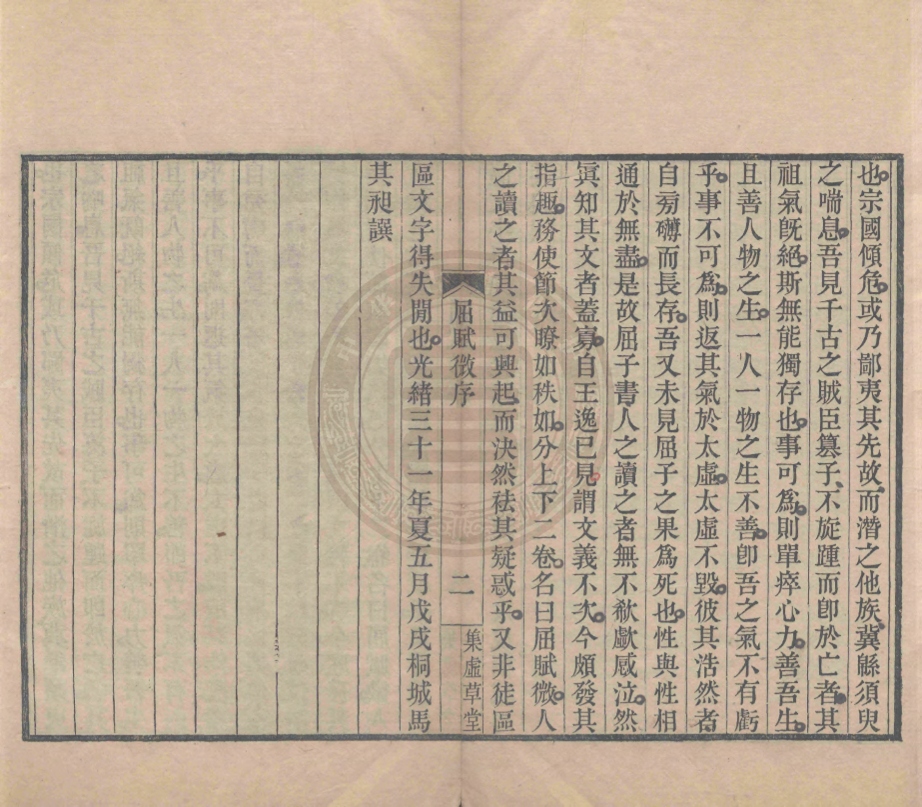 也宗國傾危或乃鄙夷其先故而潛之他族冀緜須臾
之喘息吾見千古之賊臣篡子不旋踵而卽於亡者其
祖氣旣絕斯無能獨存也事可爲則單瘁心力善吾生
且善人物之生一人一物之生不善卽吾之氣不有虧
乎事不可爲則返其氣於太虛太虛不毀彼其浩然者
自旁礴而長存吾又未見屈子之果爲死也性與性相
通於無盡是故屈子書人之讀之者無不欷歔感泣然
冥知其文者蓋寡自王逸已見謂文義不次今頗發其
指趣務使節次瞭如秩如分上下二卷名曰屈賦微人
之讀之者其益可興起而決然祛其疑惑乎又非徒區
屈賦微序
二
集虛草堂
區文字得失閒也光緒三十一年夏五月戊戌桐城馬
其昶譔